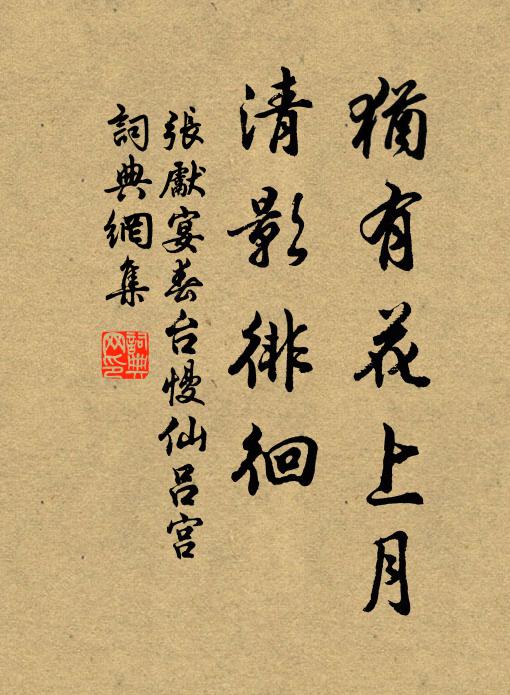 猶有花上月
清影徘徊
張獻宴春台慢仙呂宮
詞典網集
詞典
网印